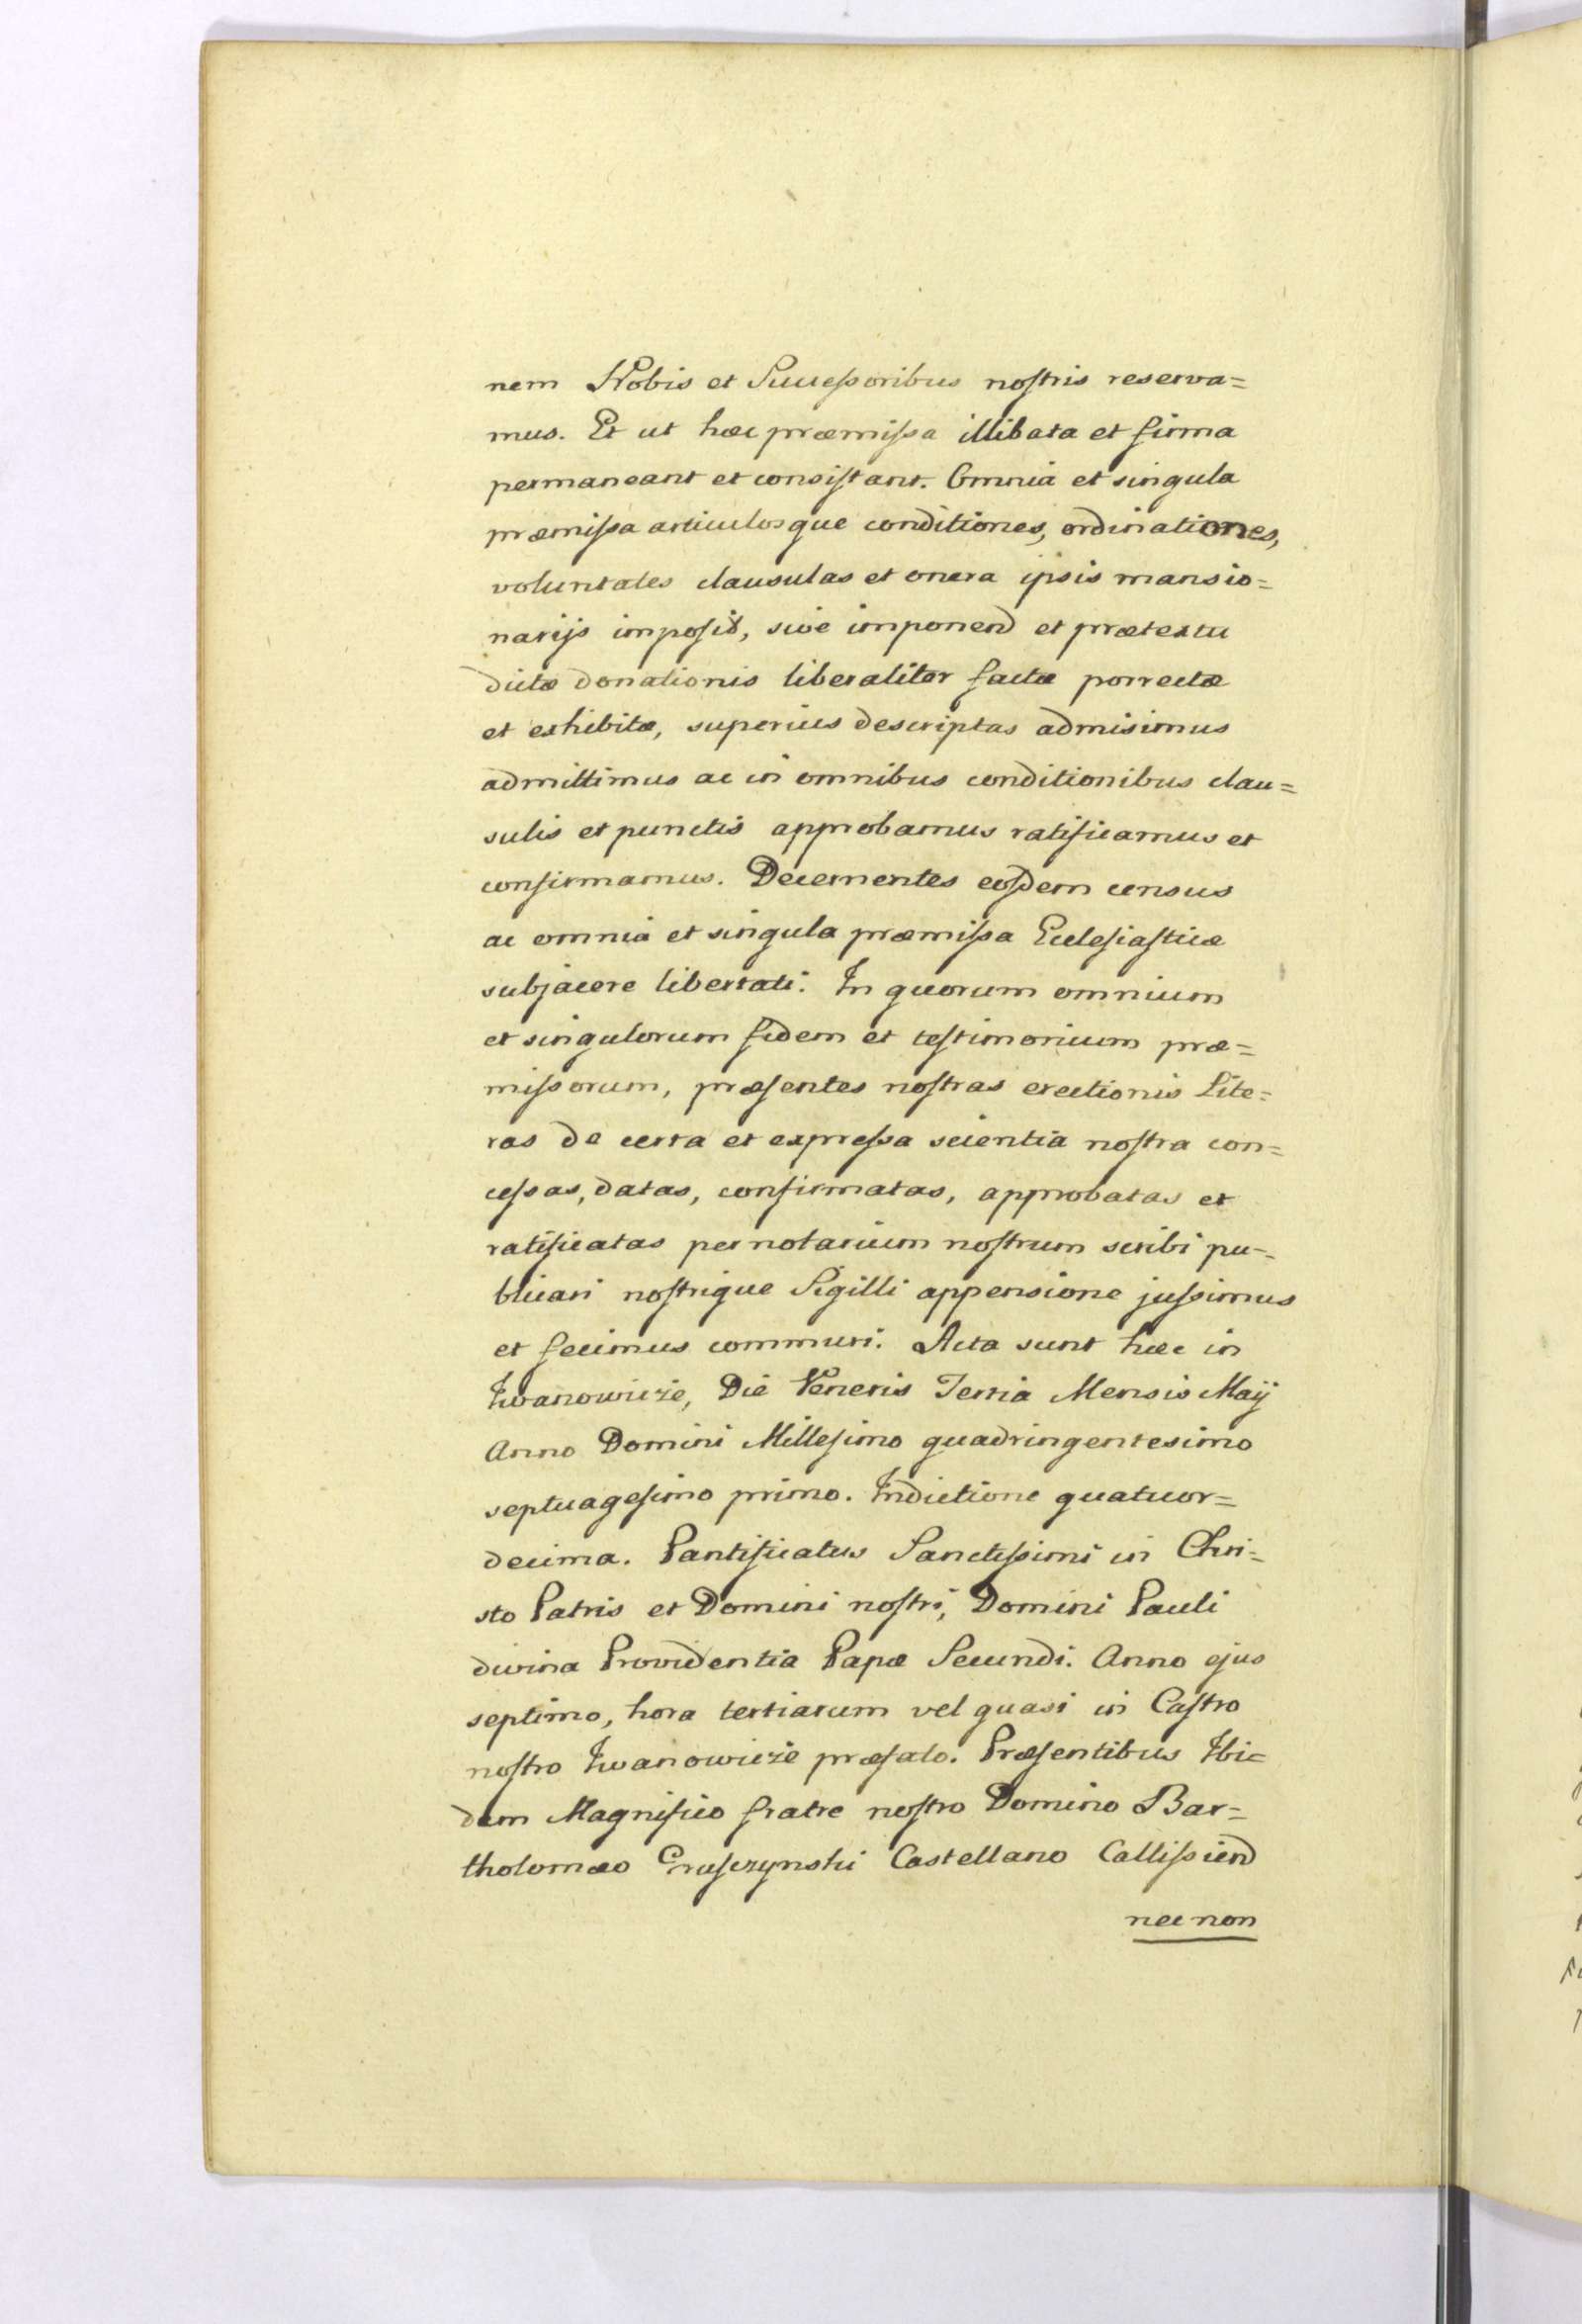 nem Nobis et Succeſsoribus noſtris reserva=
mus. Et ut hæc præmiſsa illibata et firma
permaneant et consiſtant. Omnia et singula
præmiſsa articulosque conditiones, ordinationes,
voluntates clausulas et onera ipsis mansio=
narijs impoſit, sive imponend et prætextu
dictæ donationis liberaliter factæ porrectæ
et exhibitæ, superius descriptas admisimus
admittimus ac in omnibus conditionibus clau=
sulis et punctis approbamus ratificamus et
confirmamus. Decernentes eoſdem census
ac omnia et singula præmiſsa Eccleſiaſticæ
subjacere libertati. In quorum omnium
et singulorum fidem et teſtimonium præ=
miſsorum, præſentes noſtras erectionis Lite=
ras de certa et expreſsa scientia noſtra con=
ceſsas, datas, confirmatas, approbatas et
ratificatas per notarium noſtrum scribi pu=
blicari noſtrique Sigilli appensione juſsimus
et fecimus communi. Acta sunt hæc in
Iwanowicze, Die Veneris Tertia Mensis Maij
Anno Domini Milleſimo quadringentesimo
septuageſimo primo. Indictione quatuor=
decima. Pantificatus Sanctiſsimi in Chri=
sto Patris et Domini noſtri, Domini Pauli
divina Providentia Papæ Secundi. Anno ejus
septimo, hora tertiarum vel quasi in Caſtro
noſtro Iwanowicze præfato. Præſentibus Ibi=
dem Magnifico fratre noſtro Domino Bar=
tholomæo Gruſczynski Castellano Calliſsiend
nec non